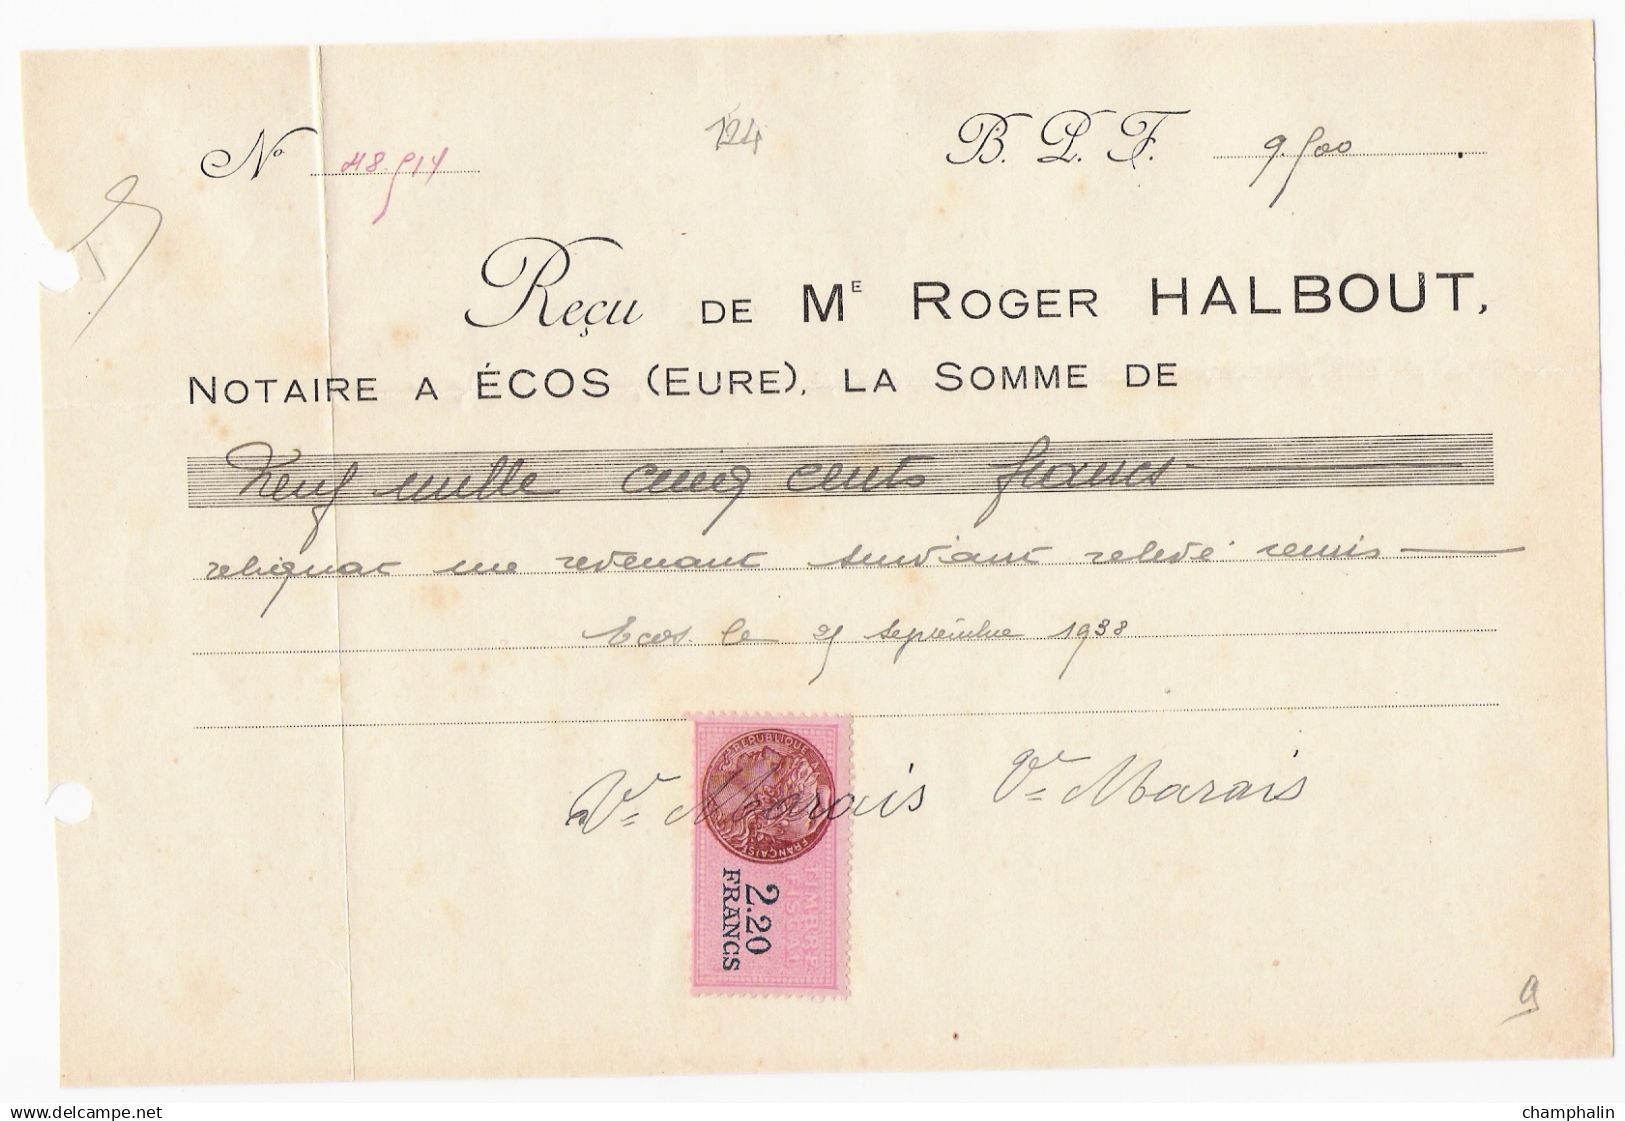 N° 48.514
124
B. P. F. 9.500
Reçu DE Mᴱ ROGER HALBOUT,
NOTAIRE A ÉCOS (EURE), LA SOMME DE
Neuf mille cinq cents francs
reliquat me revenant suivant relevé remis
Ecos le 25 septembre 1938
RÉPUBLIQUE
FRANÇAISE
TIMBRE
FISCAL
2.20
FRANCS
Vᵛᵉ Marais Vᵛᵉ Marais
9
www.delcampe.net
champhalin